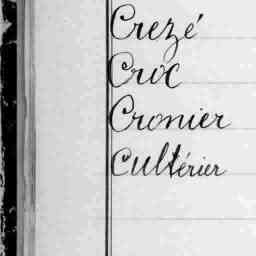 Crezé
Croc
Cronier
Cultérier